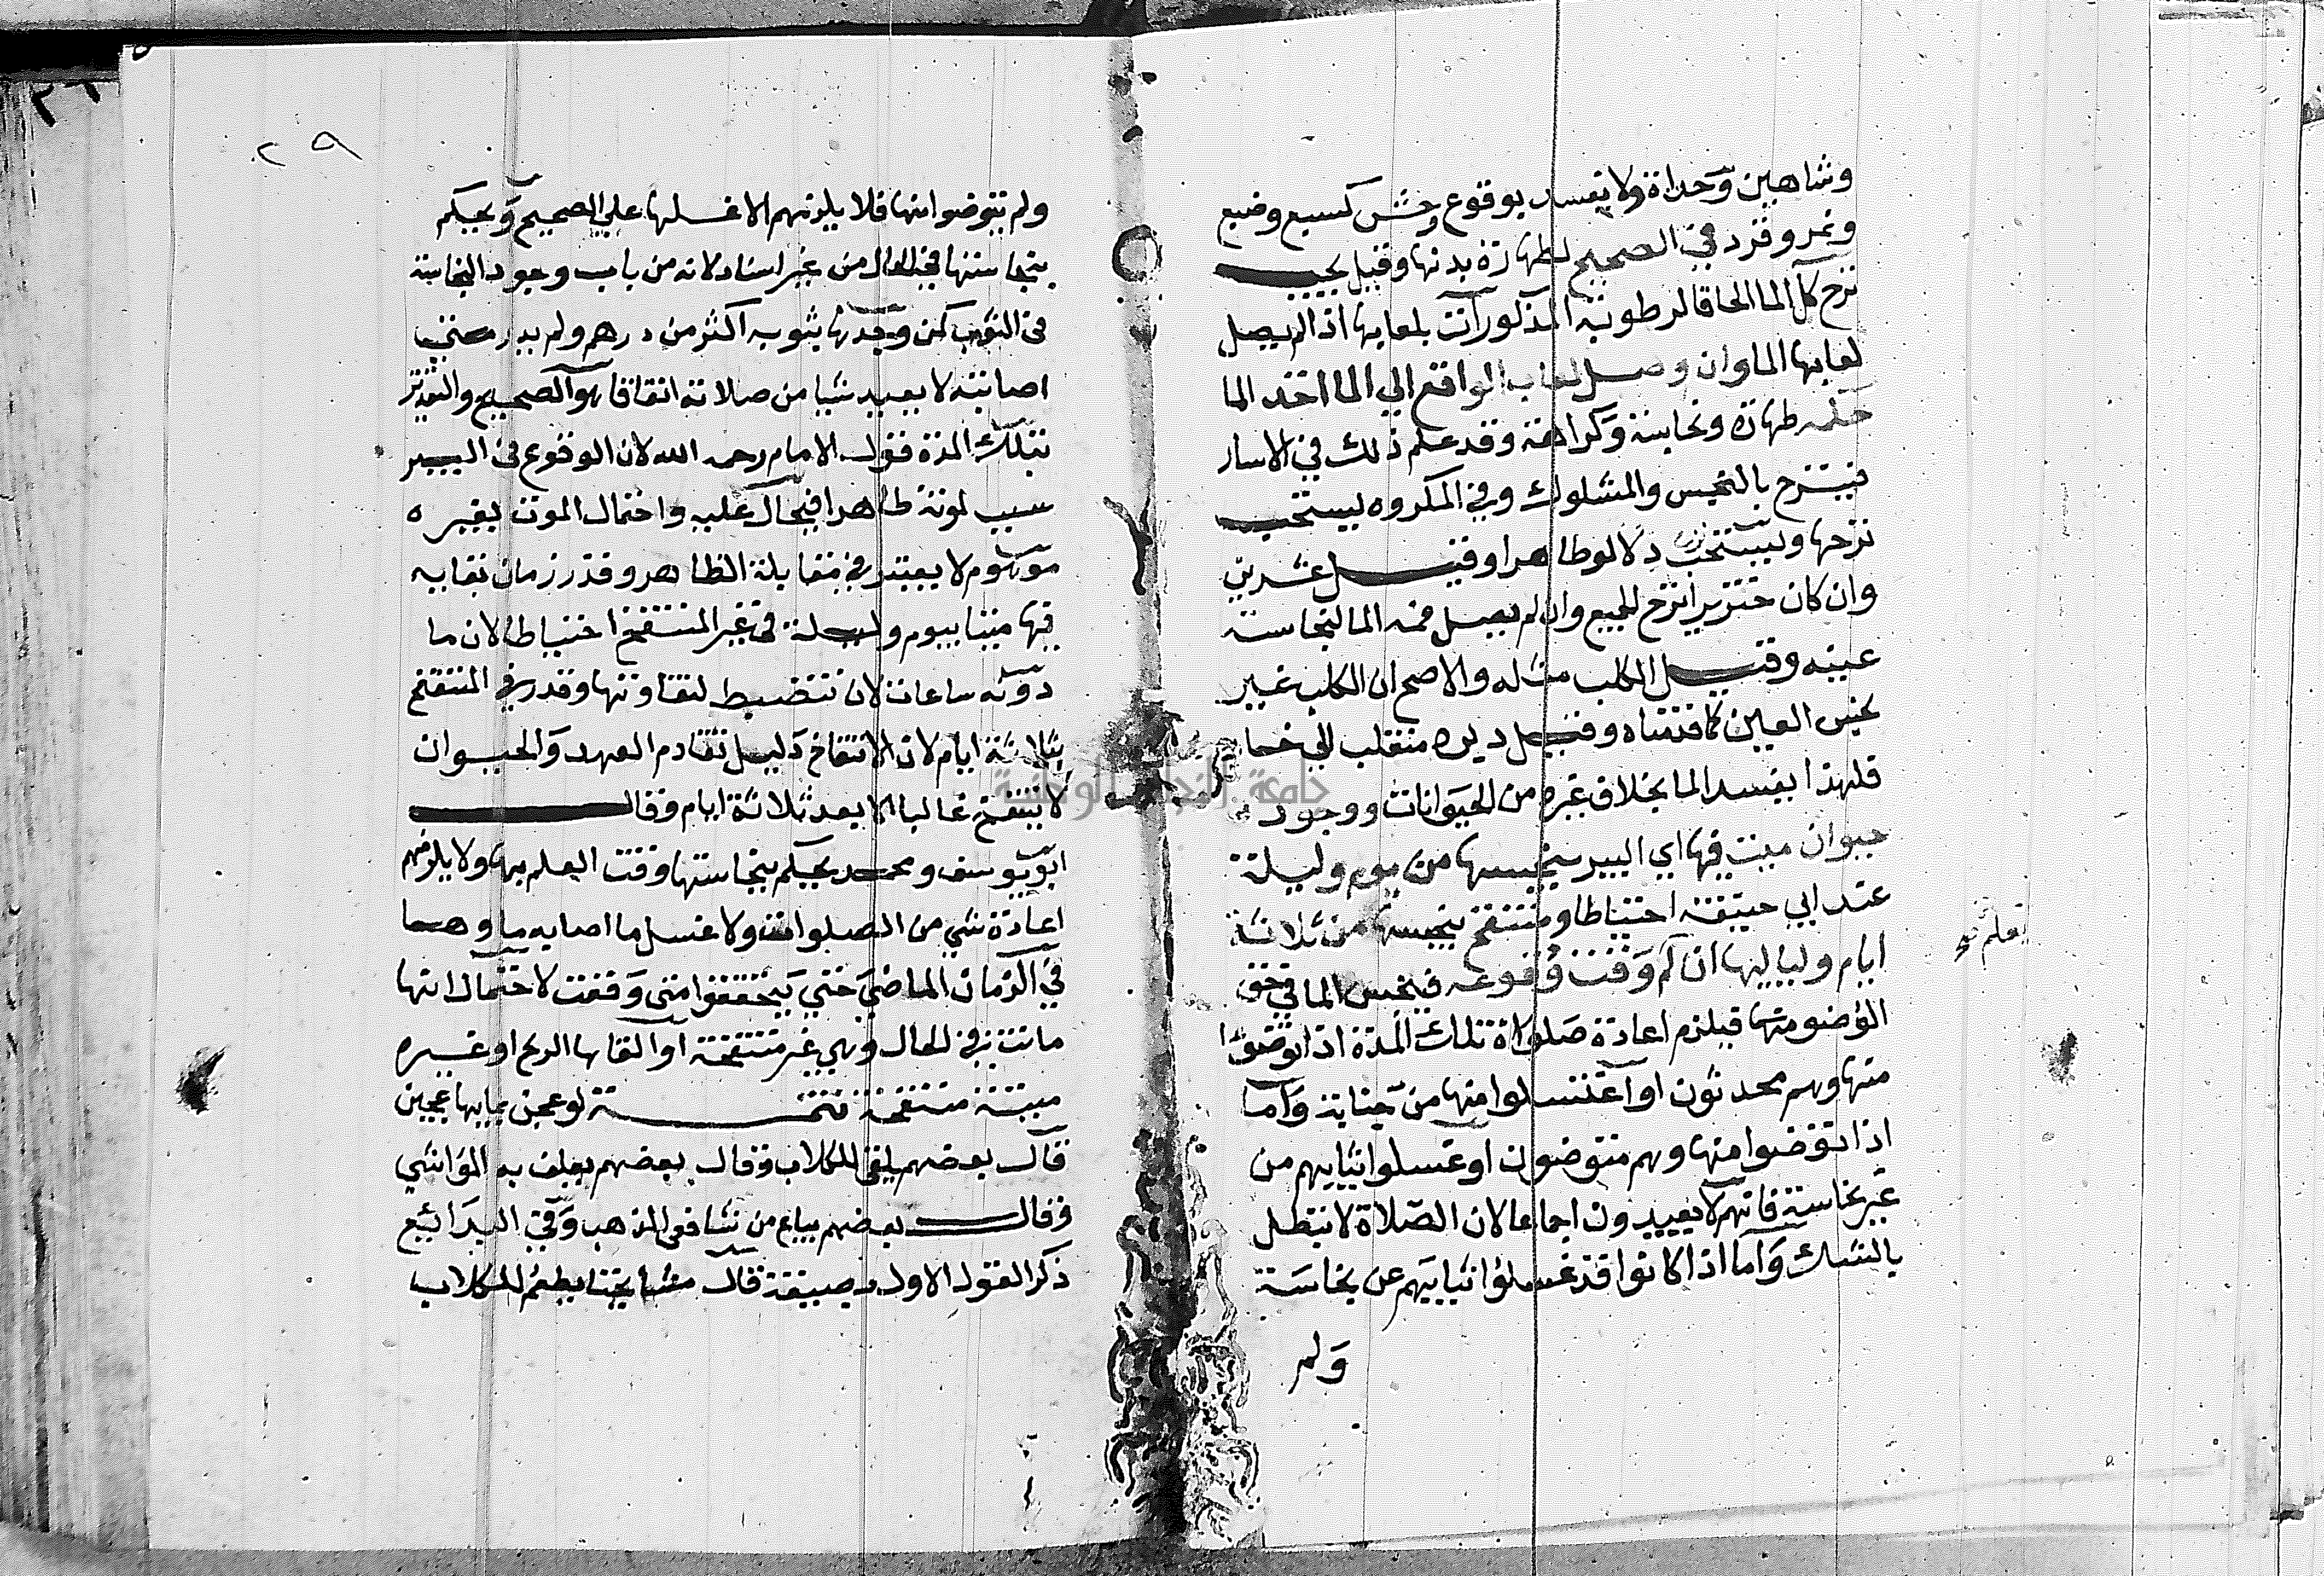 وشاهين وحداة ولا يفسد بوقوع وحش كسبع وضبع
ونمر وقرد في الصحيح لطهارة بدنها وقيل يجب
نزح كل الما الحاقا لرطوبة المذكورات بلعابها اذا لم يصل
لعابها الما وان وصل لعاب الواقع الي الما اخذ الما
حكمه طهارة ونجاسة وكراهة وقد علم ذلك في الاسار
فينزح بالنجس والمشكوك وفي المكروه يستحب
نزحها ويستحب دلا لو طاهرا وقيل عشرين
وان كان خنزيرا نزح الجميع وان لم يصل فمه الما لنجاسة
عينه وقيل الكلب مثله والاصح ان الكلب غير
نجس العين كما قدمناه وقيل دبره منقلب الي خما
فلهذا يفسد الما بخلاف غيره من الحيوانات ووجود
حيوان ميت فيها اي البير ينجسها من يوم وليلة
عند ابي حنيفة احتياطا ومنتفخ ينجسها من ثلاثة
ايام ولياليها ان لم وقت وقوعه فينجس الما في حق
يعلم صح
الوضو منها فيلزم اعادة صلوات تلك المدة اذا توضوا
منها وهم محدثون او اغتسلوا منها من جنابة واما
اذا توضوا منها وهم متوضون او غسلوا ثيابهم من
غير نجاسة فانهم لا يعيدون اجماعا لان الصلاة لا تبطل
بالشك واما اذا كانوا قد غسلوا ثيابهم عن نجاسة
ولم
٢٩
ولم يتوضوا منها فلا يلزمهم الا غسلها علي الصحيح ويحكم
بنجاستها في الحال من غير اسناد لانه من باب وجود النجاسة
في الثوب كمن وجد نها بثوبه اكثر من درهم ولم يدر متي
اصابته لا يعيد شيا من صلاته اتفاقا هو الصحيح والتقدير
بتلك المدة قول الامام رحمه الله لان الوقوع في البير
سبب لموته ظاهرا فيحال عليه واحتمال الموت بغيره
موهوم لا يعتبر في مقابلة الظاهر وقدر زمان بقايه
فيها ميتا بيوم وليلة في غير المنتفخ احتياطا لان ما
دونه ساعات لان تنضبط لتفاوتها وقدر في المنتفخ
بثلاثة ايام لان الانتفاخ دليل تقادم العهد والحيوان
لا ينتفخ غالبا الا بعد ثلاثة ايام وقال
ابو يوسف ومحمد يحكم بنجاستها وقت العلم بها ولا يلزمهم
اعادة شي من الصلوات ولا غسل ما اصابه ماوهما
في الزمان الماضي حتي يتحققوا متي وقعت لاحتمال انها
ماتت في الحال وهي غير منتفخة او القاها الريح او غيره
ميتة منتفخة تتمة لو عجن بمايها عجين
قال بعضهم يلقي للكلاب وقال بعضهم يعلف به المواشي
وقال بعضهم يباع من شافعي المذهب وفي البدايع
ذكر القول الاول بصيغة قال مشايخنا يطعم للكلاب